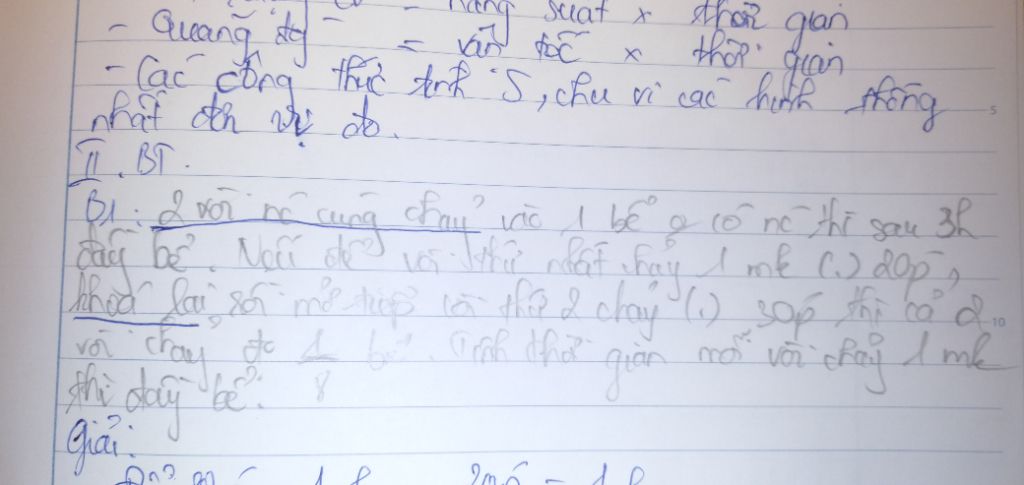 = năng suất x thời gian
- Quãng đg = vận tốc x thời gian
- Các công thức tính S, chu vi các hình thông
nhất đơn vị đo.
II. BT.
B1: 2 vòi nc cùng chảy vào 1 bể o có nc thì sau 3h
đầy bể. Nếu để vòi thứ nhất chảy 1 mk (.) 20p,
khoá lại, rồi mở tiếp vòi thứ 2 chảy (.) 30p thì cả 2
vòi chảy đc 1/8 bể. Tính thời gian mỗi vòi chảy 1 mk
thì đầy bể.
Giải: